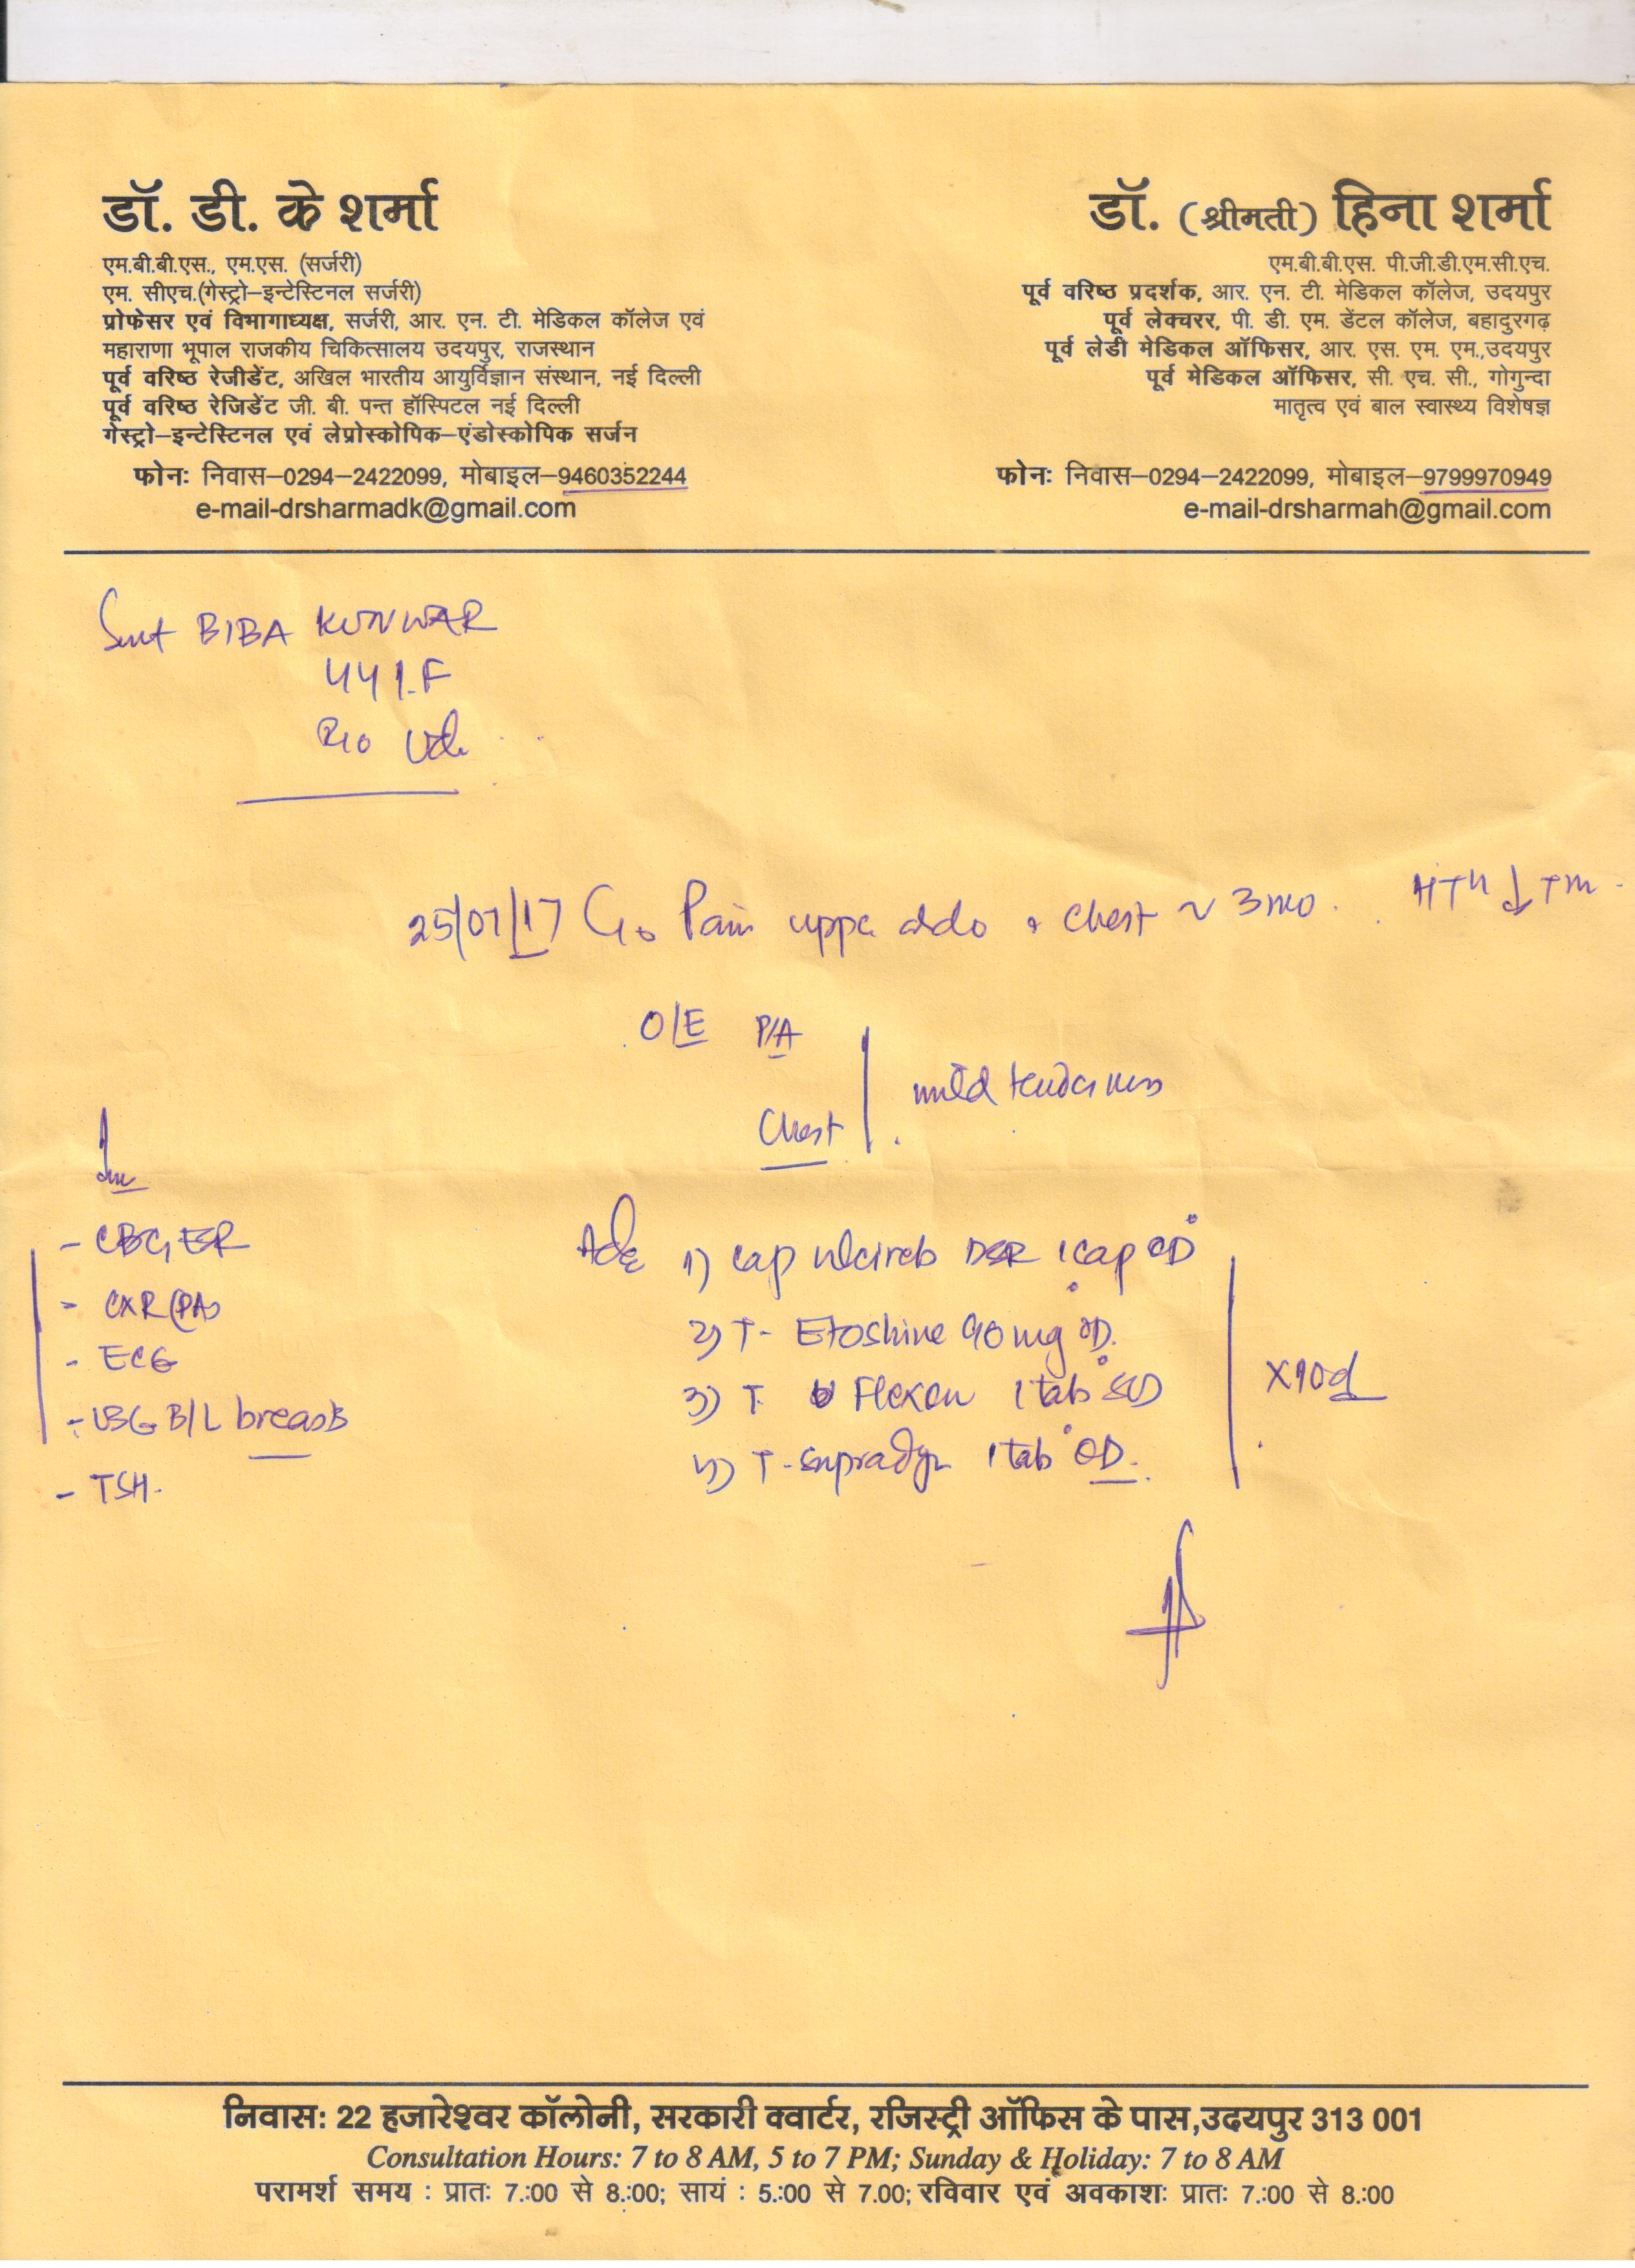 डॉ. डी. के शर्मा
एम.बी.बी.एस., एम.एस. (सर्जरी)
एम. सीएच.(गेस्ट्रो–इन्टेस्टिनल सर्जरी)
प्रोफेसर एवं विभागाध्यक्ष, सर्जरी, आर. एन. टी. मेडिकल कॉलेज एवं
महाराणा भूपाल राजकीय चिकित्सालय उदयपुर, राजस्थान
पूर्व वरिष्ठ रेजीडेंट, अखिल भारतीय आयुर्विज्ञान संस्थान, नई दिल्ली
पूर्व वरिष्ठ रेजिडेंट जी. बी. पन्त हॉस्पिटल नई दिल्ली
गेस्ट्रो–इन्टेस्टिनल एवं लेप्रोस्कोपिक–एंडोस्कोपिक सर्जन
फोनः निवास–0294–2422099, मोबाइल–9460352244
e-mail-drsharmadk@gmail.com
डॉ. (श्रीमती) हिना शर्मा
एम.बी.बी.एस. पी.जी.डी.एम.सी.एच.
पूर्व वरिष्ठ प्रदर्शक, आर. एन. टी. मेडिकल कॉलेज, उदयपुर
पूर्व लेक्चरर, पी. डी. एम. डेंटल कॉलेज, बहादुरगढ़
पूर्व लेडी मेडिकल ऑफिसर, आर. एस. एम. एम.,उदयपुर
पूर्व मेडिकल ऑफिसर, सी. एच. सी., गोगुन्दा
मातृत्व एवं बाल स्वास्थ्य विशेषज्ञ
फोनः निवास–0294–2422099, मोबाइल–9799970949
e-mail-drsharmah@gmail.com
Smt BIBA KUNWAR
44/F
R/o Ud
25/07/17 C/o Pain upper abdo + chest ~ 3 mo. HTN
O/E P/A
mild tenderness
Chest
Inv
- CBC, ESR
- CXR (PA)
- ECG
- USG B/L breast
- TSH.
Adv 1) cap DSR 1 cap OD
2) T- Etoshine 90 mg OD.
3) T. Flexon 1 tab
4) T- Supradyn 1 tab OD.
x10d
निवासः 22 हजारेश्वर कॉलोनी, सरकारी क्वार्टर, रजिस्ट्री ऑफिस के पास,उदयपुर 313 001
Consultation Hours: 7 to 8 AM, 5 to 7 PM; Sunday & Holiday: 7 to 8 AM
परामर्श समय : प्रातः 7.:00 से 8.:00; सायं : 5.:00 से 7.00; रविवार एवं अवकाशः प्रातः 7.:00 से 8.:00